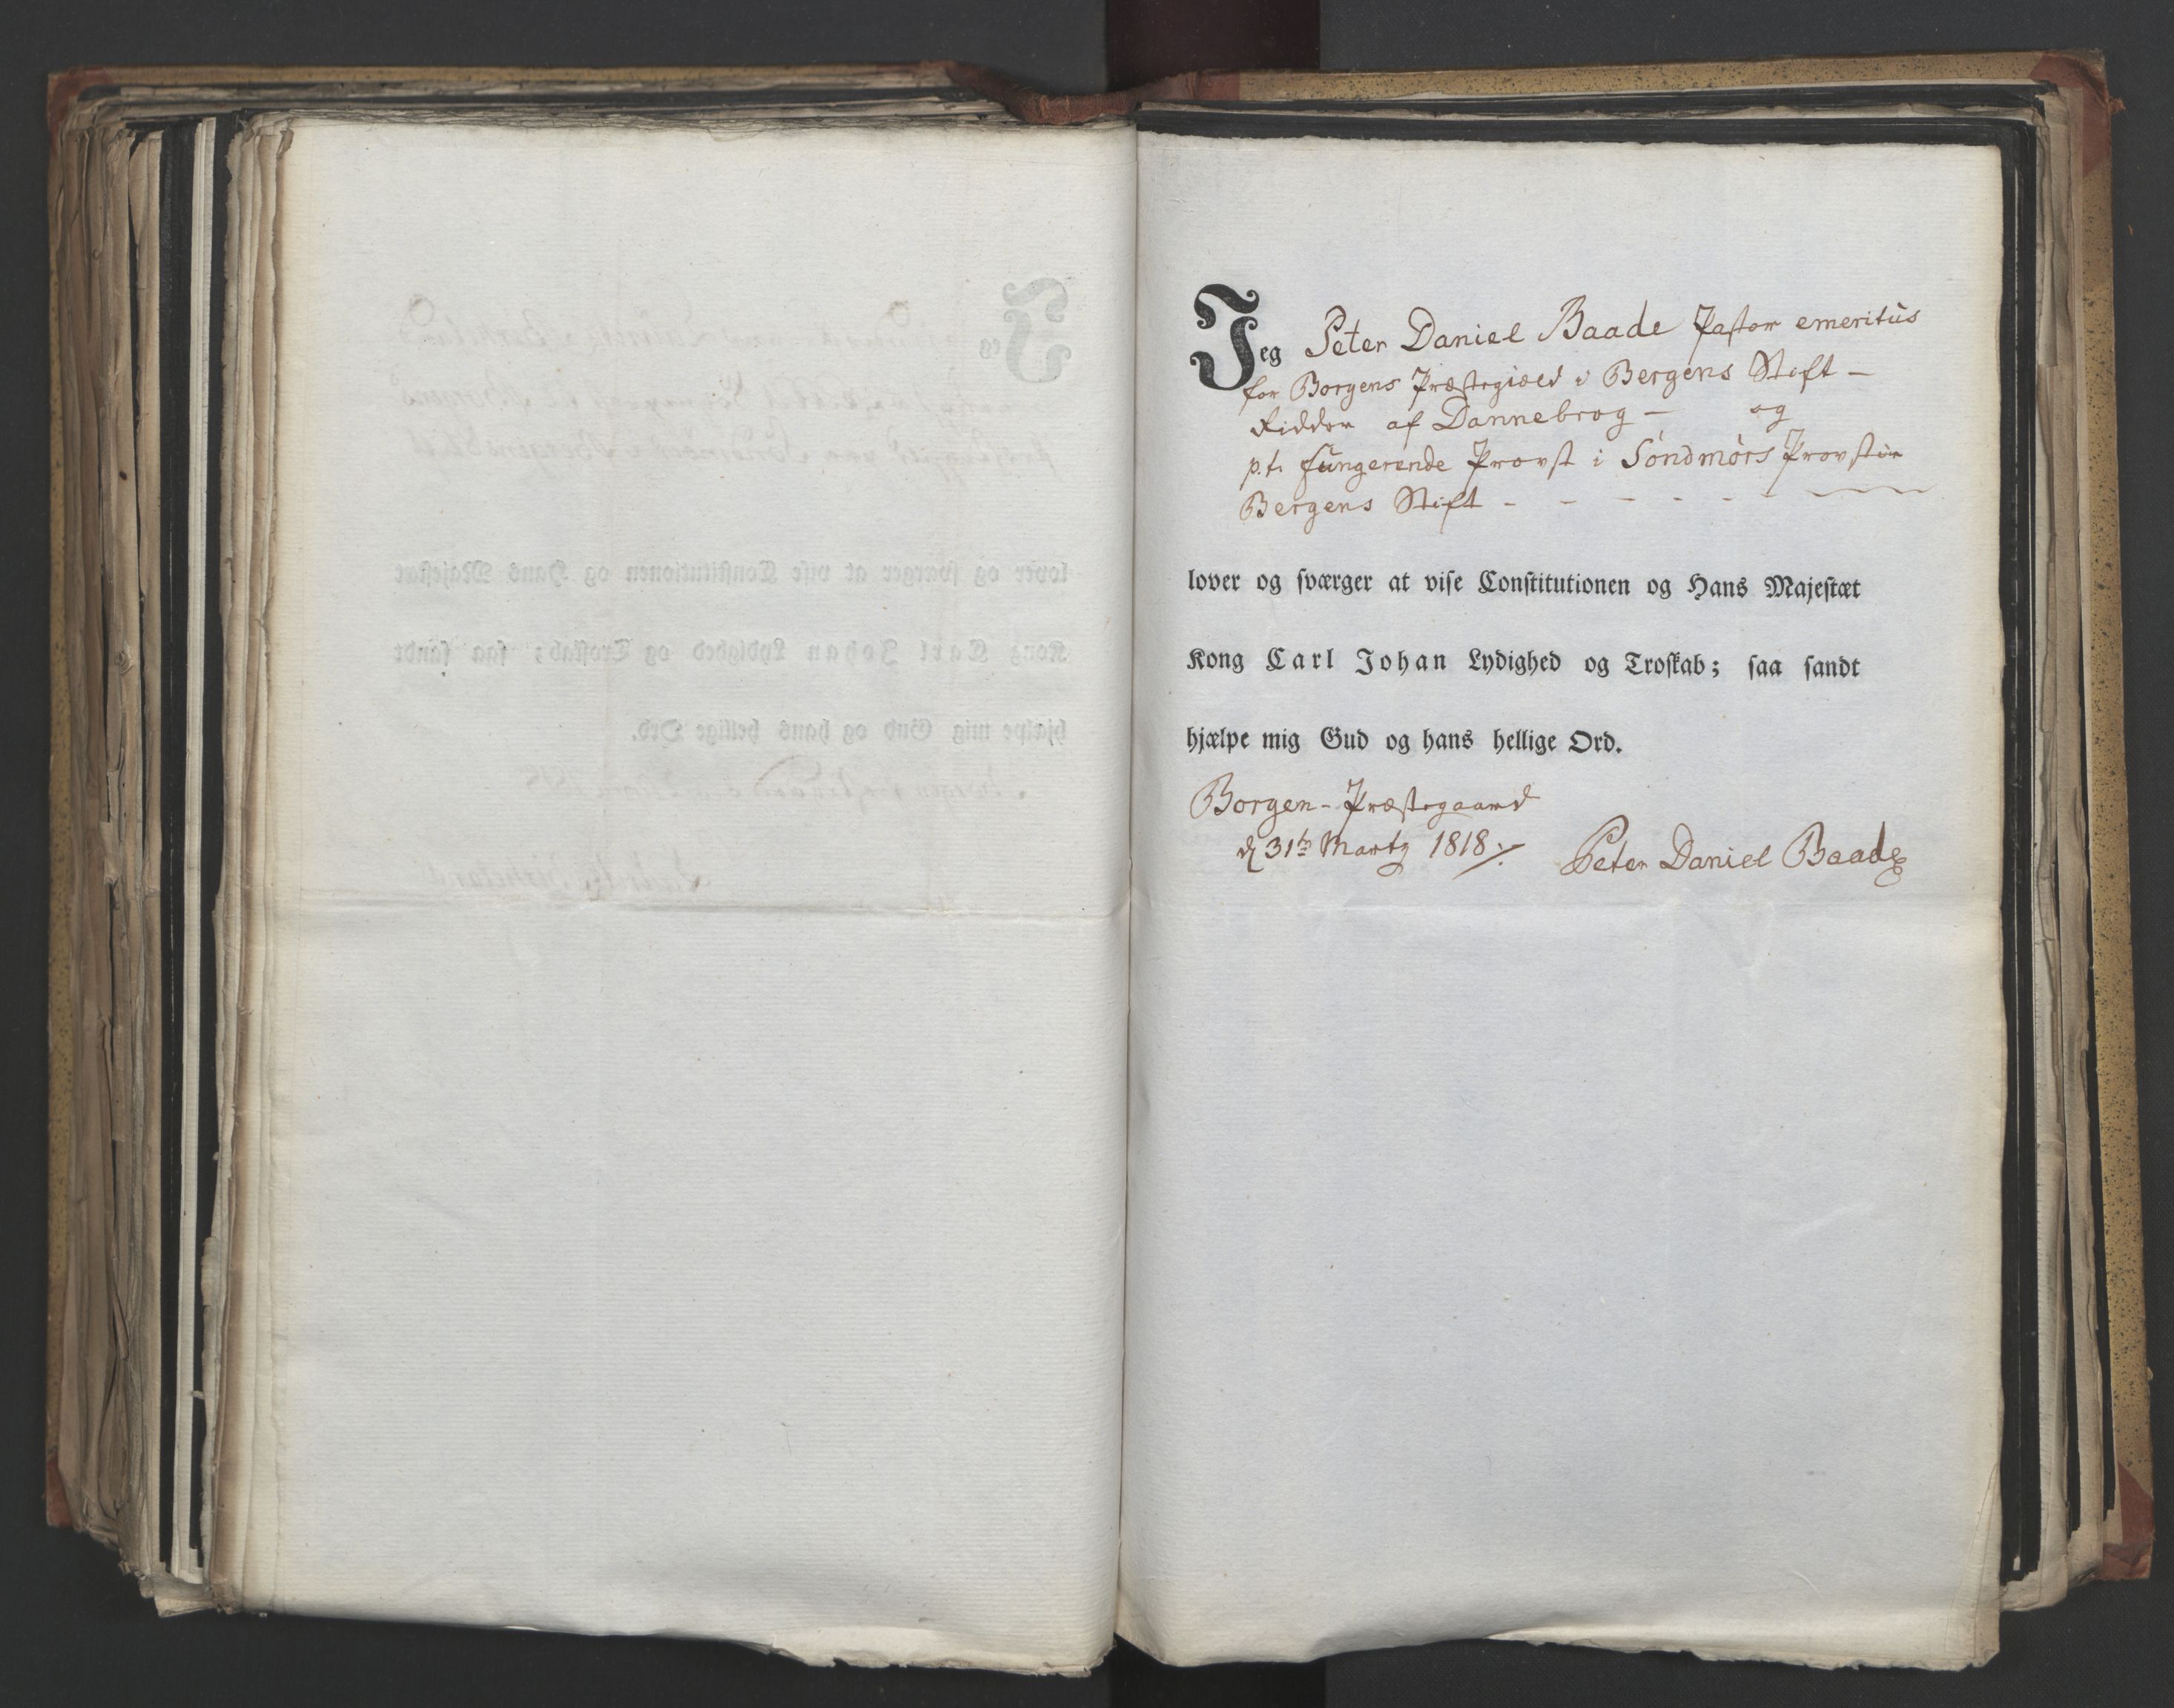 Jeg Peter Daniel Baade Pastor emeritus
for Borgens Præstegiæld i Bergens Stift —
Ridder af Dannebrog — og
p.t. fungerende Provst i Söndmörs Provstie
Bergens Stift - - - - - -
lover og sværger at vise Constitutionen og Hans Majestæt
Kong Carl Johan Lydighed og Troskab; saa sandt
hjælpe mig Gud og hans hellige Ord.
Borgen-Præstegaard
d 31te Martz 1818 Peter Daniel Baade